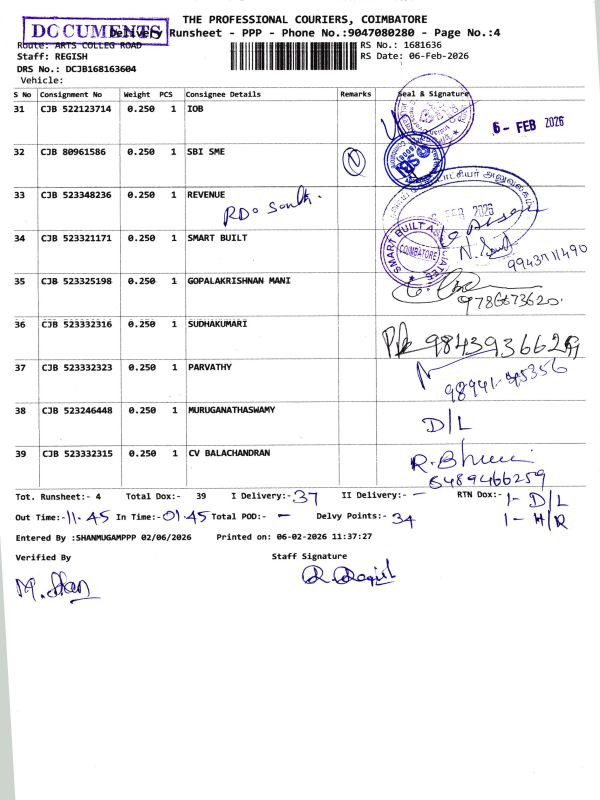 THE PROFESSIONAL COURIERS, COIMBATORE
DOCUMENTS
Delivery Runsheet - PPP - Phone No.:9047080280 - Page No.:4
Route: ARTS COLLEG ROAD
RS No.: 1681636
Staff: REGISH
RS Date: 06-Feb-2026
DRS No.: DCJB168163604
Vehicle:
S No Consignment No Weight PCS Consignee Details Remarks Seal & Signature
31 CJB 522123714 0.250 1 IOB
6- FEB 2026
32 CJB 80961586 0.250 1 SBI SME N
SBI
33 CJB 523348236 0.250 1 REVENUE
RDO South.
FEB 2026
34 CJB 523321171 0.250 1 SMART BUILT
SMART BUILT ASSOCIATES COIMBATORE
9943711490
35 CJB 523325198 0.250 1 GOPALAKRISHNAN MANI
9786673620.
36 CJB 523332316 0.250 1 SUDHAKUMARI
37 CJB 523332323 0.250 1 PARVATHY
38 CJB 523246448 0.250 1 MURUGANATHASWAMY
D/L
39 CJB 523332315 0.250 1 CV BALACHANDRAN
8489466259
Tot. Runsheet:- 4 Total Dox:- 39 I Delivery:- 37 II Delivery:- - RTN Dox:- 1- D/L
Out Time:- 11.45 In Time:- 01.45 Total POD:- - Delvy Points:- 34 1- H/R
Entered By :SHANMUGAMPPP 02/06/2026 Printed on: 06-02-2026 11:37:27
Verified By Staff Signature